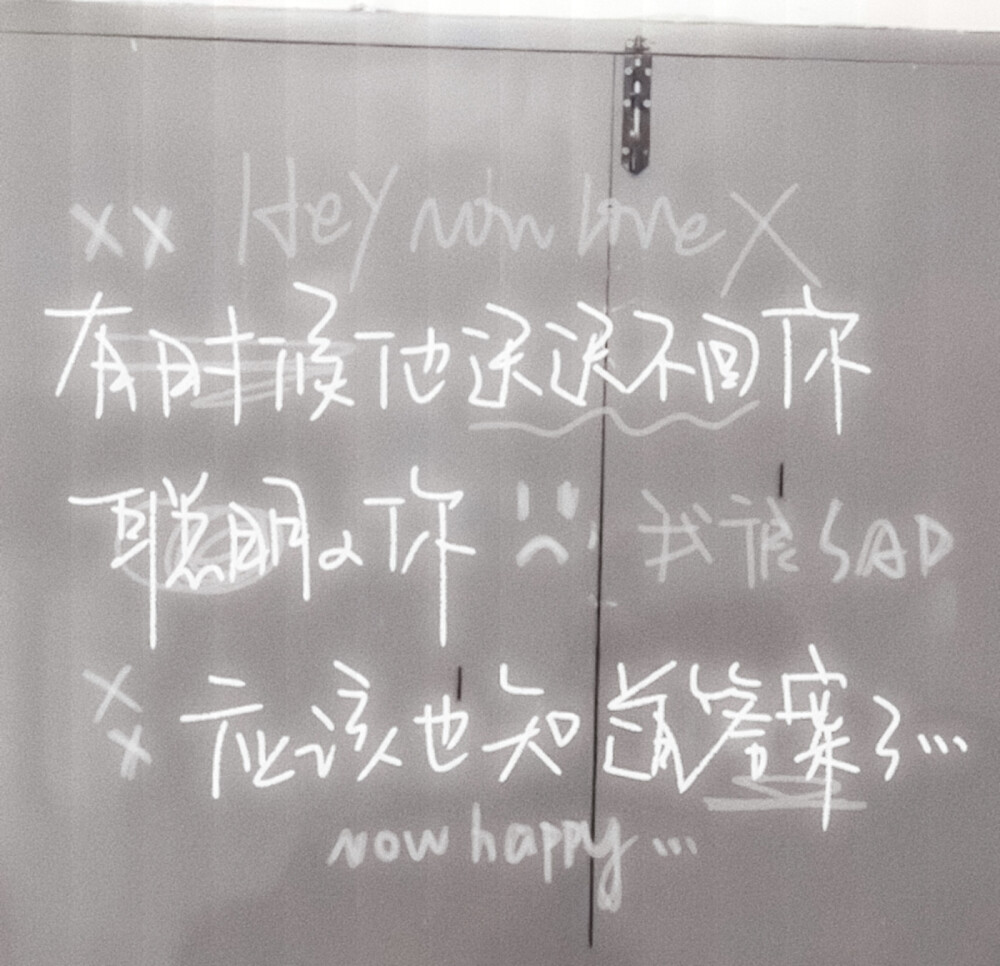 xx Hey love X
有时候他迟迟不回你
聪明の你 :( 我很SAD
xx 应该也知道答案了...
now happy...